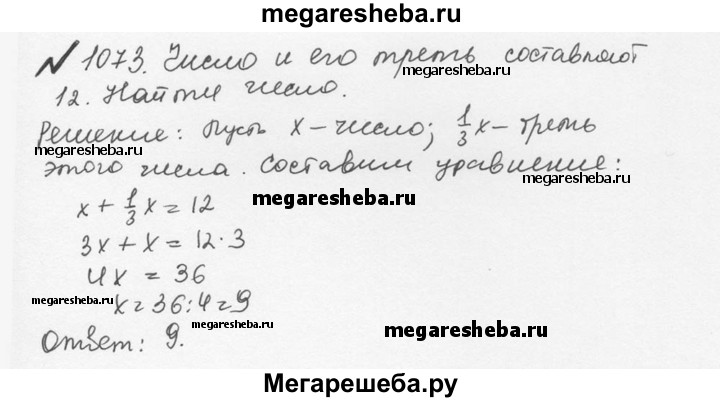 megaresheba.ru
№ 1073. Число и его треть составляют
megaresheba.ru
12. Найти число.
Решение: Пусть x – число; 1/3 x – треть
megaresheba.ru
этого числа. Составим уравнение:
megaresheba.ru
x + 1/3 x = 12
megaresheba.ru
3x + x = 12·3
4x = 36
megaresheba.ru
x = 36:4 = 9
Ответ: 9.
megaresheba.ru
megaresheba.ru
Мегарешеба.ру